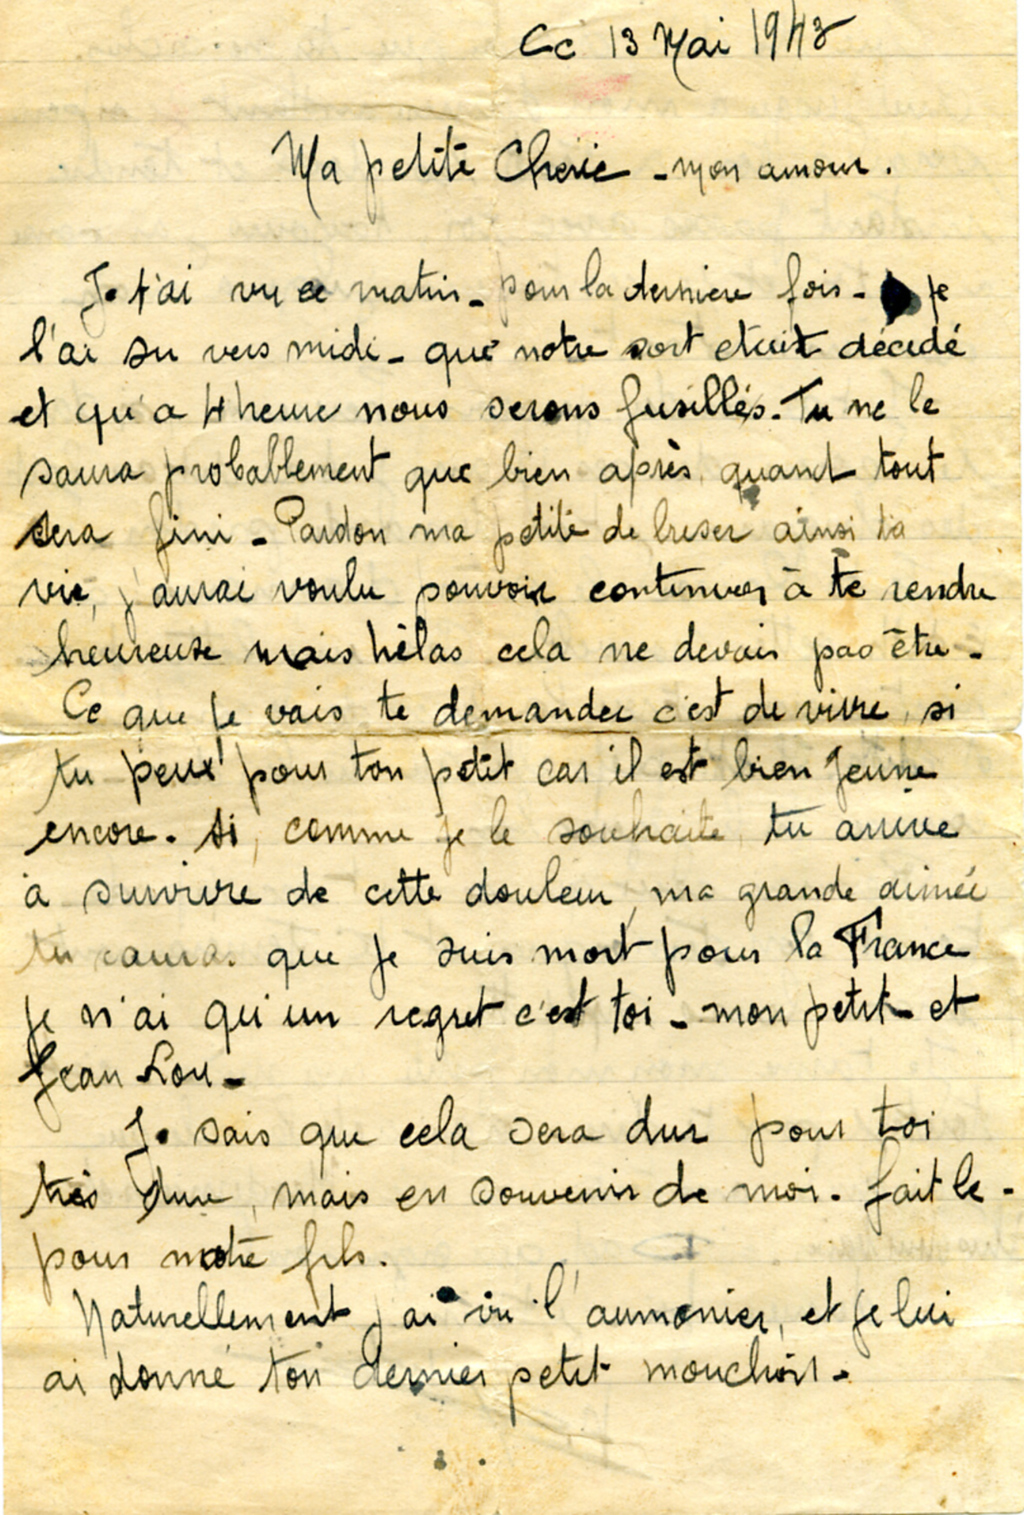 Ce 13 Mai 1943
Ma petite Cherie - mon amour.
Je t'ai vu ce matin - pour la derniere fois - je
l'ai su vers midi - que notre sort etait décidé
et qu'a 4 heure nous serons fusillés. Tu ne le
saura probablement que bien après quand tout
sera fini - Pardon ma petite de briser ainsi ta
vie, j'aurai voulu pouvoir continuer à te rendre
heureuse mais hèlas cela ne devais pas être -
Ce que je vais te demander c'est de vivre, si
tu peux pour ton petit car il est bien jeune
encore. Si, comme je le souhaite, tu arrive
a survivre de cette douleur, ma grande aimée
tu sauras que je suis mort pour la France
je n'ai qu'un regret c'est toi - mon petit - et
Jean Lou -
Je sais que cela sera dur pour toi
très dure, mais en souvenir de moi. fait le -
pour notre fils.
Naturellement j'ai vu l'aumonier, et je lui
ai donné ton dernier petit mouchoir -